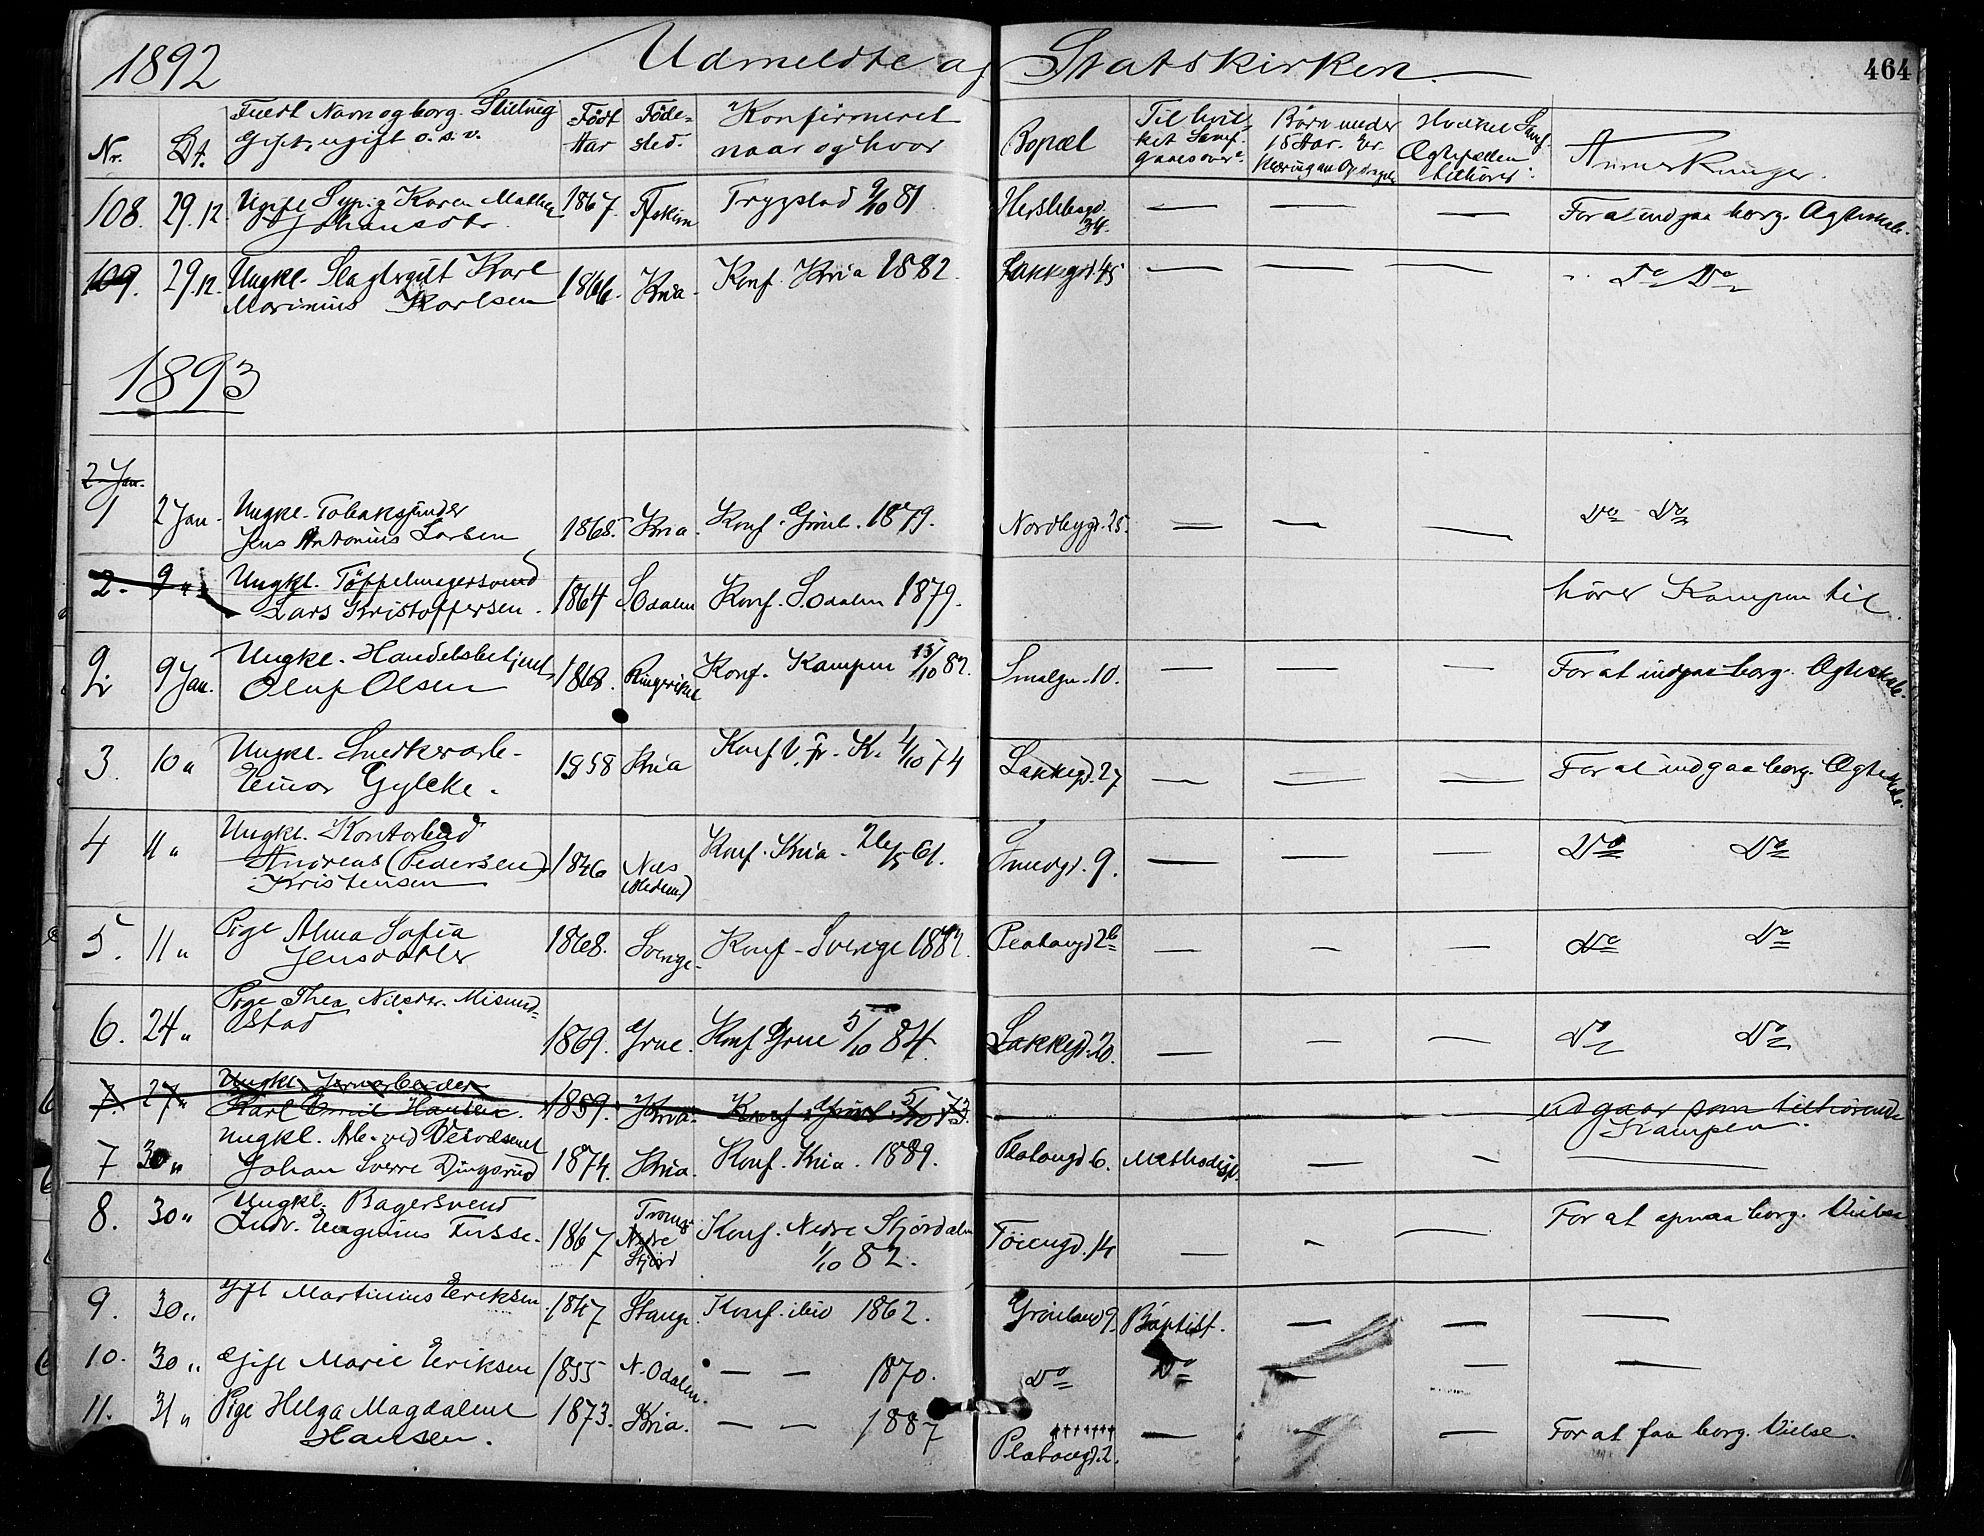 1892 Udmeldte af Statskirken. 464
Nr. Dt. Fuldt Navn og borg. Stilling Gift, ugift o.s.v. Født Aar Føde-sted. Konfirmeret naar og hvor Bopæl Til hvilket Samf. gaaes over? Børn under 15 Aar. Er Ægtefællen tilhører: Anmerkninger.
108. 29.12. Ugift Sypig. Karen Mathea Johansdtr. 1867. Trygstad 9/10 81. Herslebsgd. 34. — — — For at indgaa borg. Ægteskab.
109. 29.12. Ungkl. Slagtergut Karl Marinius Karlsen 1866. Kria. Konf. Kria 1882. Lakkegd. 45 — — — Do Do
1893
2 Jan.
1 2 Jan. Ungkl. Tobaksspinder Jens Antonius Larsen 1865. Kria. Konf. Grønl. 1879. Nordbygd. 25. — — — Do Do
2. 9 " Ungkl. Tøffelmagersvend Lars Kristoffersen. 1864 S. Odalen Konf. S. Odalen 1879. hører Kampen til.
2 9 Jan. Ungkl. Handelsbetjent Oluf Olsen 1868. Ringerike Konf. Kampen 15/10 82. Smalgn. 10. — — — For at indgaa borg. Ægteskab.
3. 10 " Ungkl. Snedkerarb. Einar Gylche. 1858 Kria Konf. V. Fr. K. 4/10 74 Lakkegd. 27 — — — For at indgaa borg. Ægteskab.
4 11 " Ungkl. Kontorbud Andreas (Pedersen) Kristensen 1846 Næs Konf. Kria. 26/5 61. Smedgd. 9. — — — Do Do
5. 11 " Pige Alma Sofia Jensdatter 1868. Sverige. Konf. Sverige 1882. Platougd 2b — — — Do Do
6. 24 " Pige Thea Nilsdtr. Misund-stad 1869. Grue. Konf Grue 5/10 84. Lakkegd. 20. — — — Do Do
7. 27 " Ungkl. Jernarbeider Karl Emil Hansen. 1859. Kria. Konf. Grønl 5/10 73. — — — udgaar som tilhørende Kampen.
7 30 " Ungkl. Arb. ved Veivæsenet Johan Sverre Dingsrud 1874. Kria. Konf. Kria. 1889. Platougd 6. Methodist. — — —
8. 30 " Ungkl. Bagersvend Ludv. Eugenius Fusse. 1867 Tromsø Nedre Stjørd Konf. Nedre Stjørdalen 1/10 82. Tøiengd. 14 — — — For at opnaa borg. Vielse
9. 30 " Gift Martinius Eriksen. 1847 Stange. Konf. ibid 1862. Grønland 9. Baptist. — — —
10. 30 " Gift Marie Eriksen 1855 N. Odalen. — — 1870. Do Do — — —
11. 31 " Pige Helga Magdalene Hansen. 1873. Kria. — — 1887 Platougd. 2. — — — For at faa borg. Vielse.